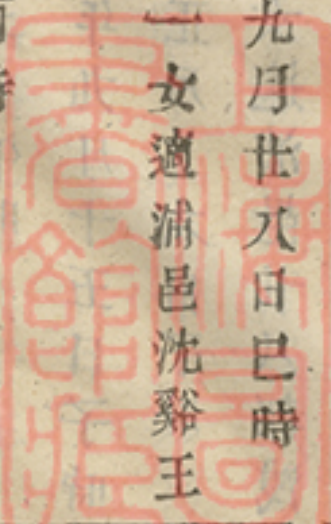 九月廿八日巳時
一女適浦邑沈谿王